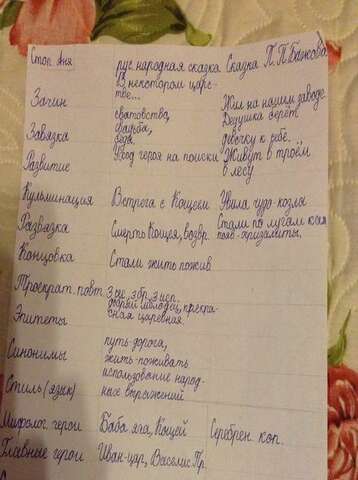 Стор. Аня рус. народная сказка Сказка П. П. Бажова
В некотором царс-
тве...
Зачин Жил на нашем заводе
сватовство, Дедушка берёт
Завязка свадьба, девочку к ребе...
беда.
Развитие Уход героя на поиски Живут в троём
в лесу
Кульминация Встреча с Кощеем Увила чудо-козла
Развязка Смерть Кощея, возвр. Стали по лугам
появ. хризолиты.
Концовка Стали жить пожив
Троекрат. повт. 3 исп.
добрый молодец, прекра-
Эпитеты сная царевная.
путь-дорога,
Синонимы жить-поживать
использование народ-
Стиль (язык) ных выражений
Мифолог. герои Баба яга, Кощей Серебрен. коп.
Главные герои Иван-цар, Василис Пр.